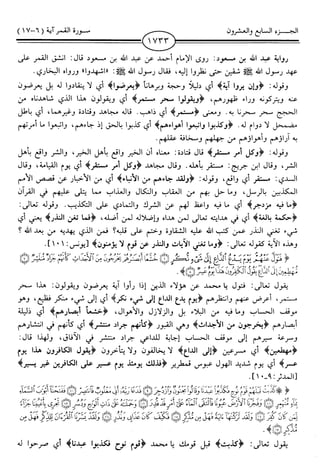 الجـــزء السابع والعشرون
١٧٣٣
سـورة القمر آية (٦-١٧)
رواية عبد الله بن مسعود: روى الإمام أحمد عن عبد الله بن مسعود قال: انشق القمر على
عهد رسول الله ﷺ شقين حتى نظروا إليه، فقال رسول الله ﷺ: «اشهدوا» ورواه البخاري.
وقوله: ﴿وإن يروا آية﴾ أي دليلاً وحجة وبرهاناً ﴿يعرضوا﴾ أي لا ينقادوا له بل يعرضون
عنه ويتركونه وراء ظهورهم، ﴿ويقولوا سحر مستمر﴾ أي ويقولون هذا الذي شاهدناه من
الحجج سحر سحرنا به. ومعنى ﴿مستمر﴾ أي ذاهب. قاله مجاهد وقتادة وغيرهما، أي باطل
مضمحل لا دوام له. ﴿وكذبوا واتبعوا أهواءهم﴾ أي كذبوا بالحق إذ جاءهم، واتبعوا ما أمرتهم
به آراؤهم وأهواؤهم من جهلهم وسخافة عقلهم.
وقوله: ﴿وكل أمر مستقر﴾ قال قتادة: معناه أن الخير واقع بأهل الخير، والشر واقع بأهل
الشر، وقال ابن جريج: مستقر بأهله. وقال مجاهد ﴿وكل أمر مستقر﴾ أي يوم القيامة، وقال
السدي: مستقر أي واقع، وقوله: ﴿ولقد جاءهم من الأنباء﴾ أي من الأخبار عن قصص الأمم
المكذبين بالرسل، وما حل بهم من العقاب والنكال والعذاب مما يتلى عليهم في القرآن
﴿ما فيه مزدجر﴾ أي ما فيه واعظ لهم عن الشرك والتمادي على التكذيب. وقوله تعالى:
﴿حكمة بالغة﴾ أي في هدايته تعالى لمن هداه وإضلاله لمن أضله، ﴿فما تغن النذر﴾ يعني أي
شيء تغني النذر عمن كتب الله عليه الشقاوة وختم على قلبه؟ فمن الذي يهديه من بعد الله ؟
وهذه الآية كقوله تعالى: ﴿وما تغني الآيات والنذر عن قوم لا يؤمنون﴾ [يونس: ١٠١].
﴿ فَتَوَلَّ عَنْهُمْ يَوْمَ يَدْعُ الدَّاعِ إِلَىٰ شَيْءٍ نُّكُرٍ خُشَّعًا أَبْصَارُهُمْ يَخْرُجُونَ مِنَ الْأَجْدَاثِ كَأَنَّهُمْ جَرَادٌ مُّنتَشِرٌ
مُّهْطِعِينَ إِلَى الدَّاعِ يَقُولُ الْكَافِرُونَ هَٰذَا يَوْمٌ عَسِرٌ ﴾.
يقول تعالى: فتول يا محمد عن هؤلاء الذين إذا رأوا آية يعرضون ويقولون: هذا سحر
مستمر، أعرض عنهم وانتظرهم ﴿يوم يدع الداع إلى شيء نكر﴾ أي إلى شيء منكر فظيع، وهو
موقف الحساب وما فيه من البلاء بل والزلازل والأهوال، ﴿خشعاً أبصارهم﴾ أي ذليلة
أبصارهم ﴿يخرجون من الأجداث﴾ وهي القبور ﴿كأنهم جراد منتشر﴾ أي كأنهم في انتشارهم
وسرعة سيرهم إلى موقف الحساب إجابة للداعي جراد منتشر في الآفاق، ولهذا قال:
﴿مهطعين﴾ أي مسرعين ﴿إلى الداع﴾ لا يخالفون ولا يتأخرون ﴿يقول الكافرون هذا يوم
عسر﴾ أي يوم شديد الهول عبوس قمطرير ﴿فذلك يومئذ يوم عسير على الكافرين غير يسير﴾
[المدثر: ٩-١٠].
﴿ كَذَّبَتْ قَبْلَهُمْ قَوْمُ نُوحٍ فَكَذَّبُوا عَبْدَنَا وَقَالُوا مَجْنُونٌ وَازْدُجِرَ فَدَعَا رَبَّهُ أَنِّي مَغْلُوبٌ فَانتَصِرْ فَفَتَحْنَا أَبْوَابَ السَّمَاءِ
بِمَاءٍ مُّنْهَمِرٍ وَفَجَّرْنَا الْأَرْضَ عُيُونًا فَالْتَقَى الْمَاءُ عَلَىٰ أَمْرٍ قَدْ قُدِرَ وَحَمَلْنَاهُ عَلَىٰ ذَاتِ أَلْوَاحٍ وَدُسُرٍ تَجْرِي بِأَعْيُنِنَا جَزَاءً
لِّمَن كَانَ كُفِرَ وَلَقَد تَّرَكْنَاهَا آيَةً فَهَلْ مِن مُّدَّكِرٍ فَكَيْفَ كَانَ عَذَابِي وَنُذُرِ وَلَقَدْ يَسَّرْنَا الْقُرْآنَ لِلذِّكْرِ فَهَلْ مِن
مُّدَّكِرٍ ﴾.
يقول تعالى: ﴿كذبت﴾ قبل قومك يا محمد ﴿قوم نوح فكذبوا عبدنا﴾ أي صرحوا له